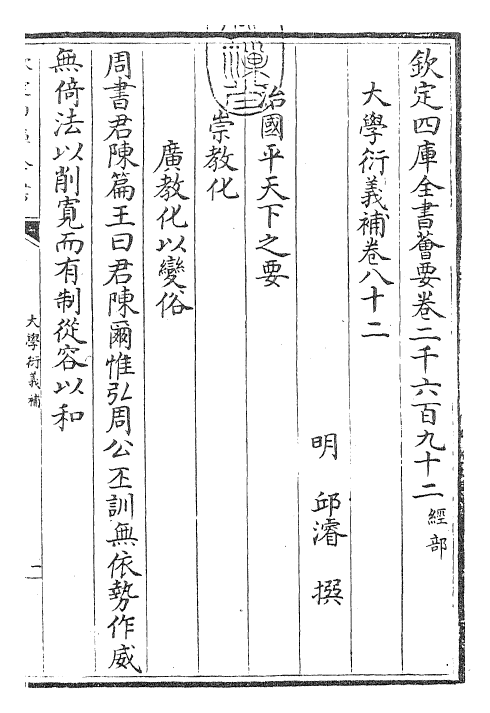 欽定四庫全書薈要卷二千六百九十二 經部
大學衍義補卷八十二
明 邱濬 撰
治國平天下之要
崇教化
廣教化以變俗
周書君陳篇王曰君陳爾惟弘周公丕訓無依勢作威
無倚法以削寛而有制從容以和
大學衍義補